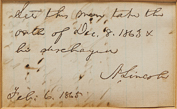 Let this man take the
oath of Dec. 8. 1863 &
be discharged
A. Lincoln
Feb. 6. 1865